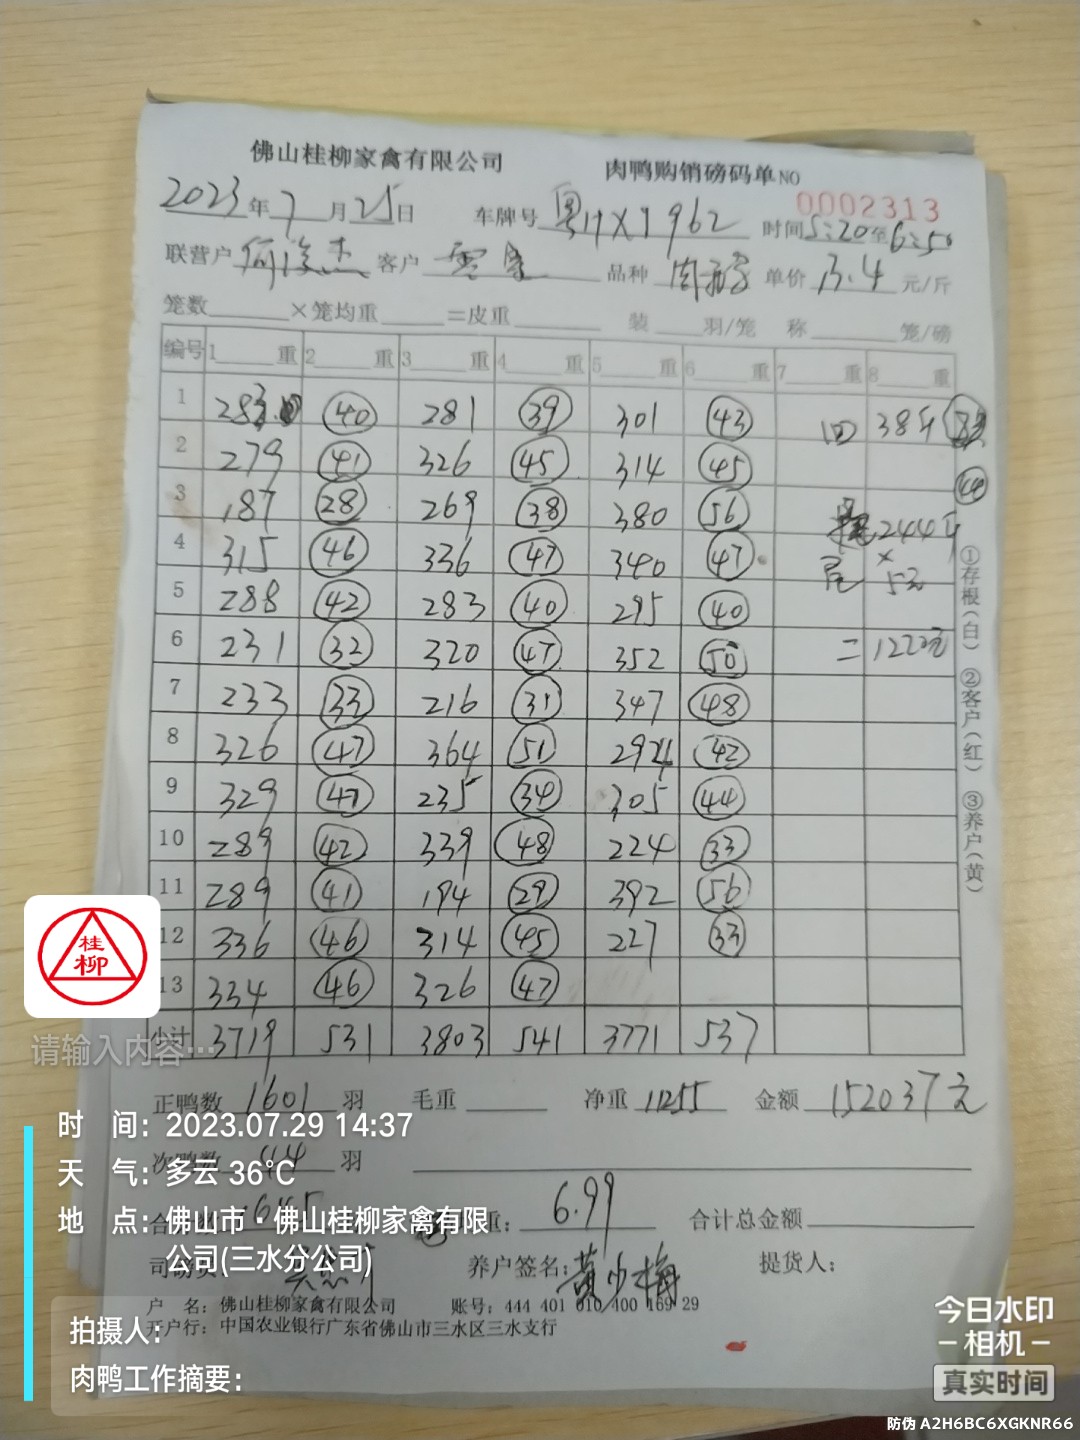 佛山桂柳家禽有限公司 肉鸭购销磅码单 NO 0002313
2023年7月25日 车牌号 粤HX1962 时间5:20至6:50
联营户 何 杰 客户 品种 单价 13.4 元/斤
笼数 ×笼均重 =皮重 装 羽/笼 称 笼/磅
编号 1 重 2 重 3 重 4 重 5 重 6 重 7 重 8 重
1 283 40 281 39 301 43 回 38斤
2 279 41 326 45 314 45 44
3 187 28 269 38 380 56 244斤
4 315 46 336 47 340 47 尾 × 5元
5 288 42 283 40 295 40
6 231 32 320 47 352 50 = 1220元
7 233 33 216 31 347 48
8 326 47 364 51 294 42
9 329 47 235 34 305 44
10 289 42 339 48 224 33
11 289 41 194 29 392 56
12 336 46 314 45 227 33
13 334 46 326 47
小计 3719 531 3803 541 3771 537
①存根(白) ②客户(红) ③养户(黄)
正鸭数 1601 羽 毛重 净重 11255 金额 152037元
次鸭数 44 羽
1645 重: 6.99 合计总金额
司磅员: 养户签名: 黄少梅 提货人:
户 名: 佛山桂柳家禽有限公司 账号: 444 401 010 400 169 29
开户行: 中国农业银行广东省佛山市三水区三水支行
桂
柳
请输入内容…
时 间: 2023.07.29 14:37
天 气: 多云 36℃
地 点: 佛山市·佛山桂柳家禽有限
公司(三水分公司)
拍摄人:
肉鸭工作摘要:
今日水印
-相机-
真实时间
防伪 A2H6BC6XGKNR66